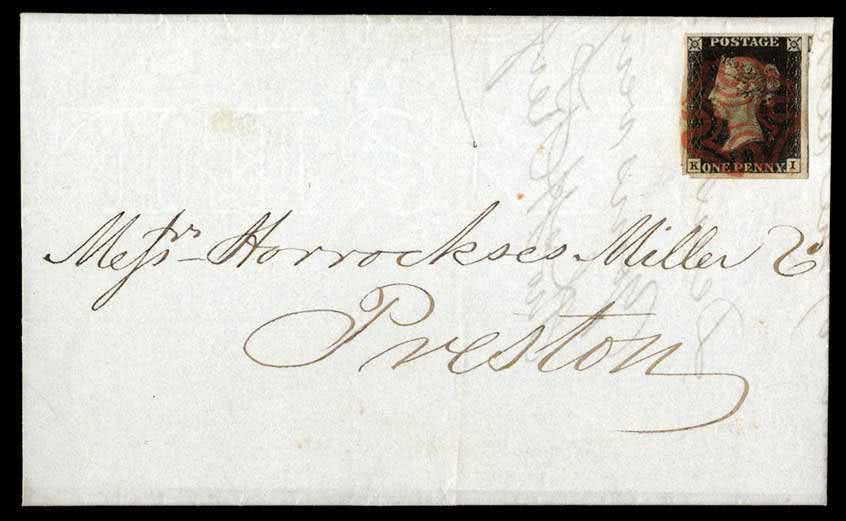 POSTAGE
K ONE PENNY I
Messrs Horrockses Miller & Co
Preston